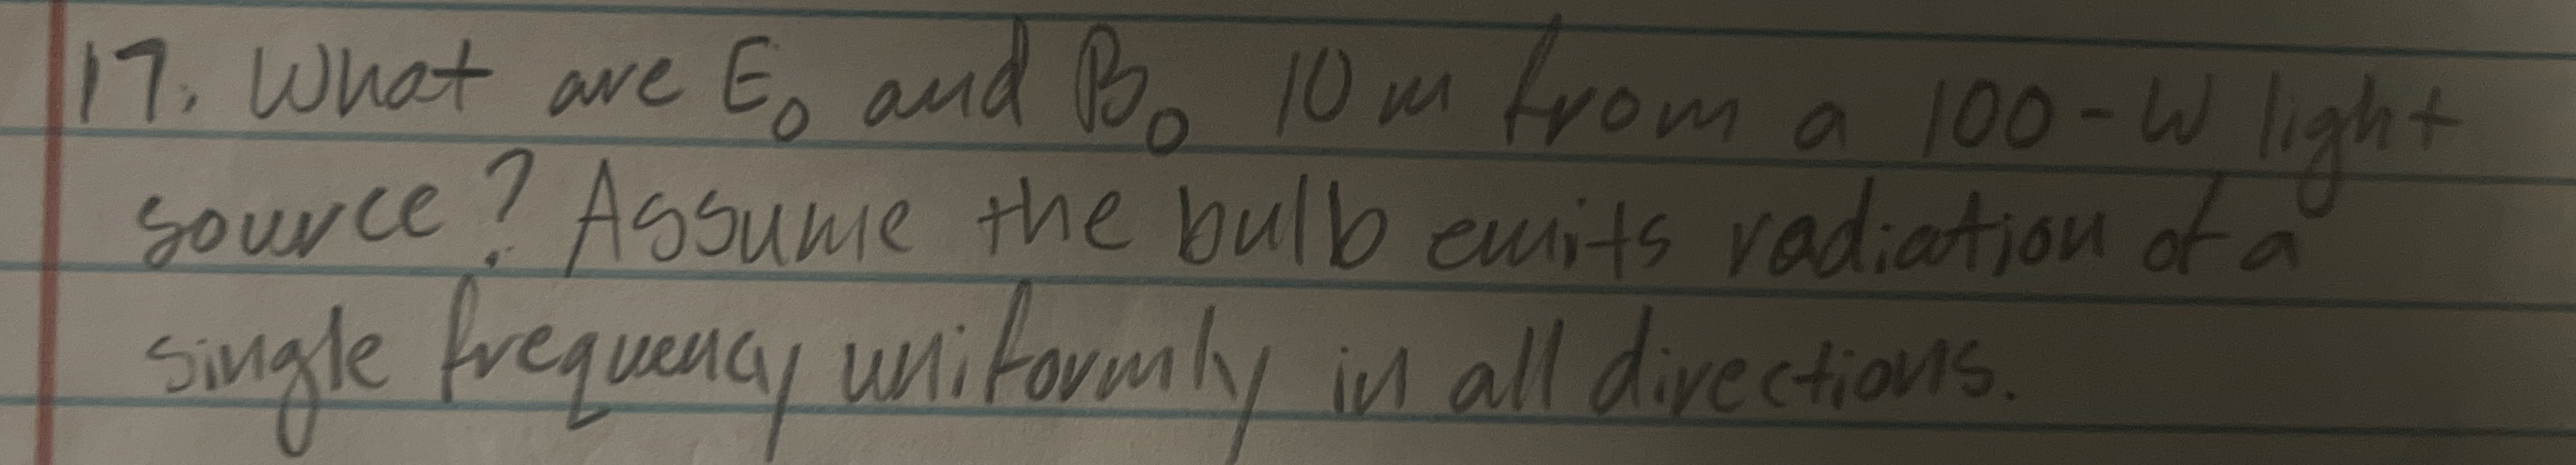 17. What are E₀ and B₀ 10 m from a 100-W light
source? Assume the bulb emits radiation of a
single frequency uniformly in all directions.